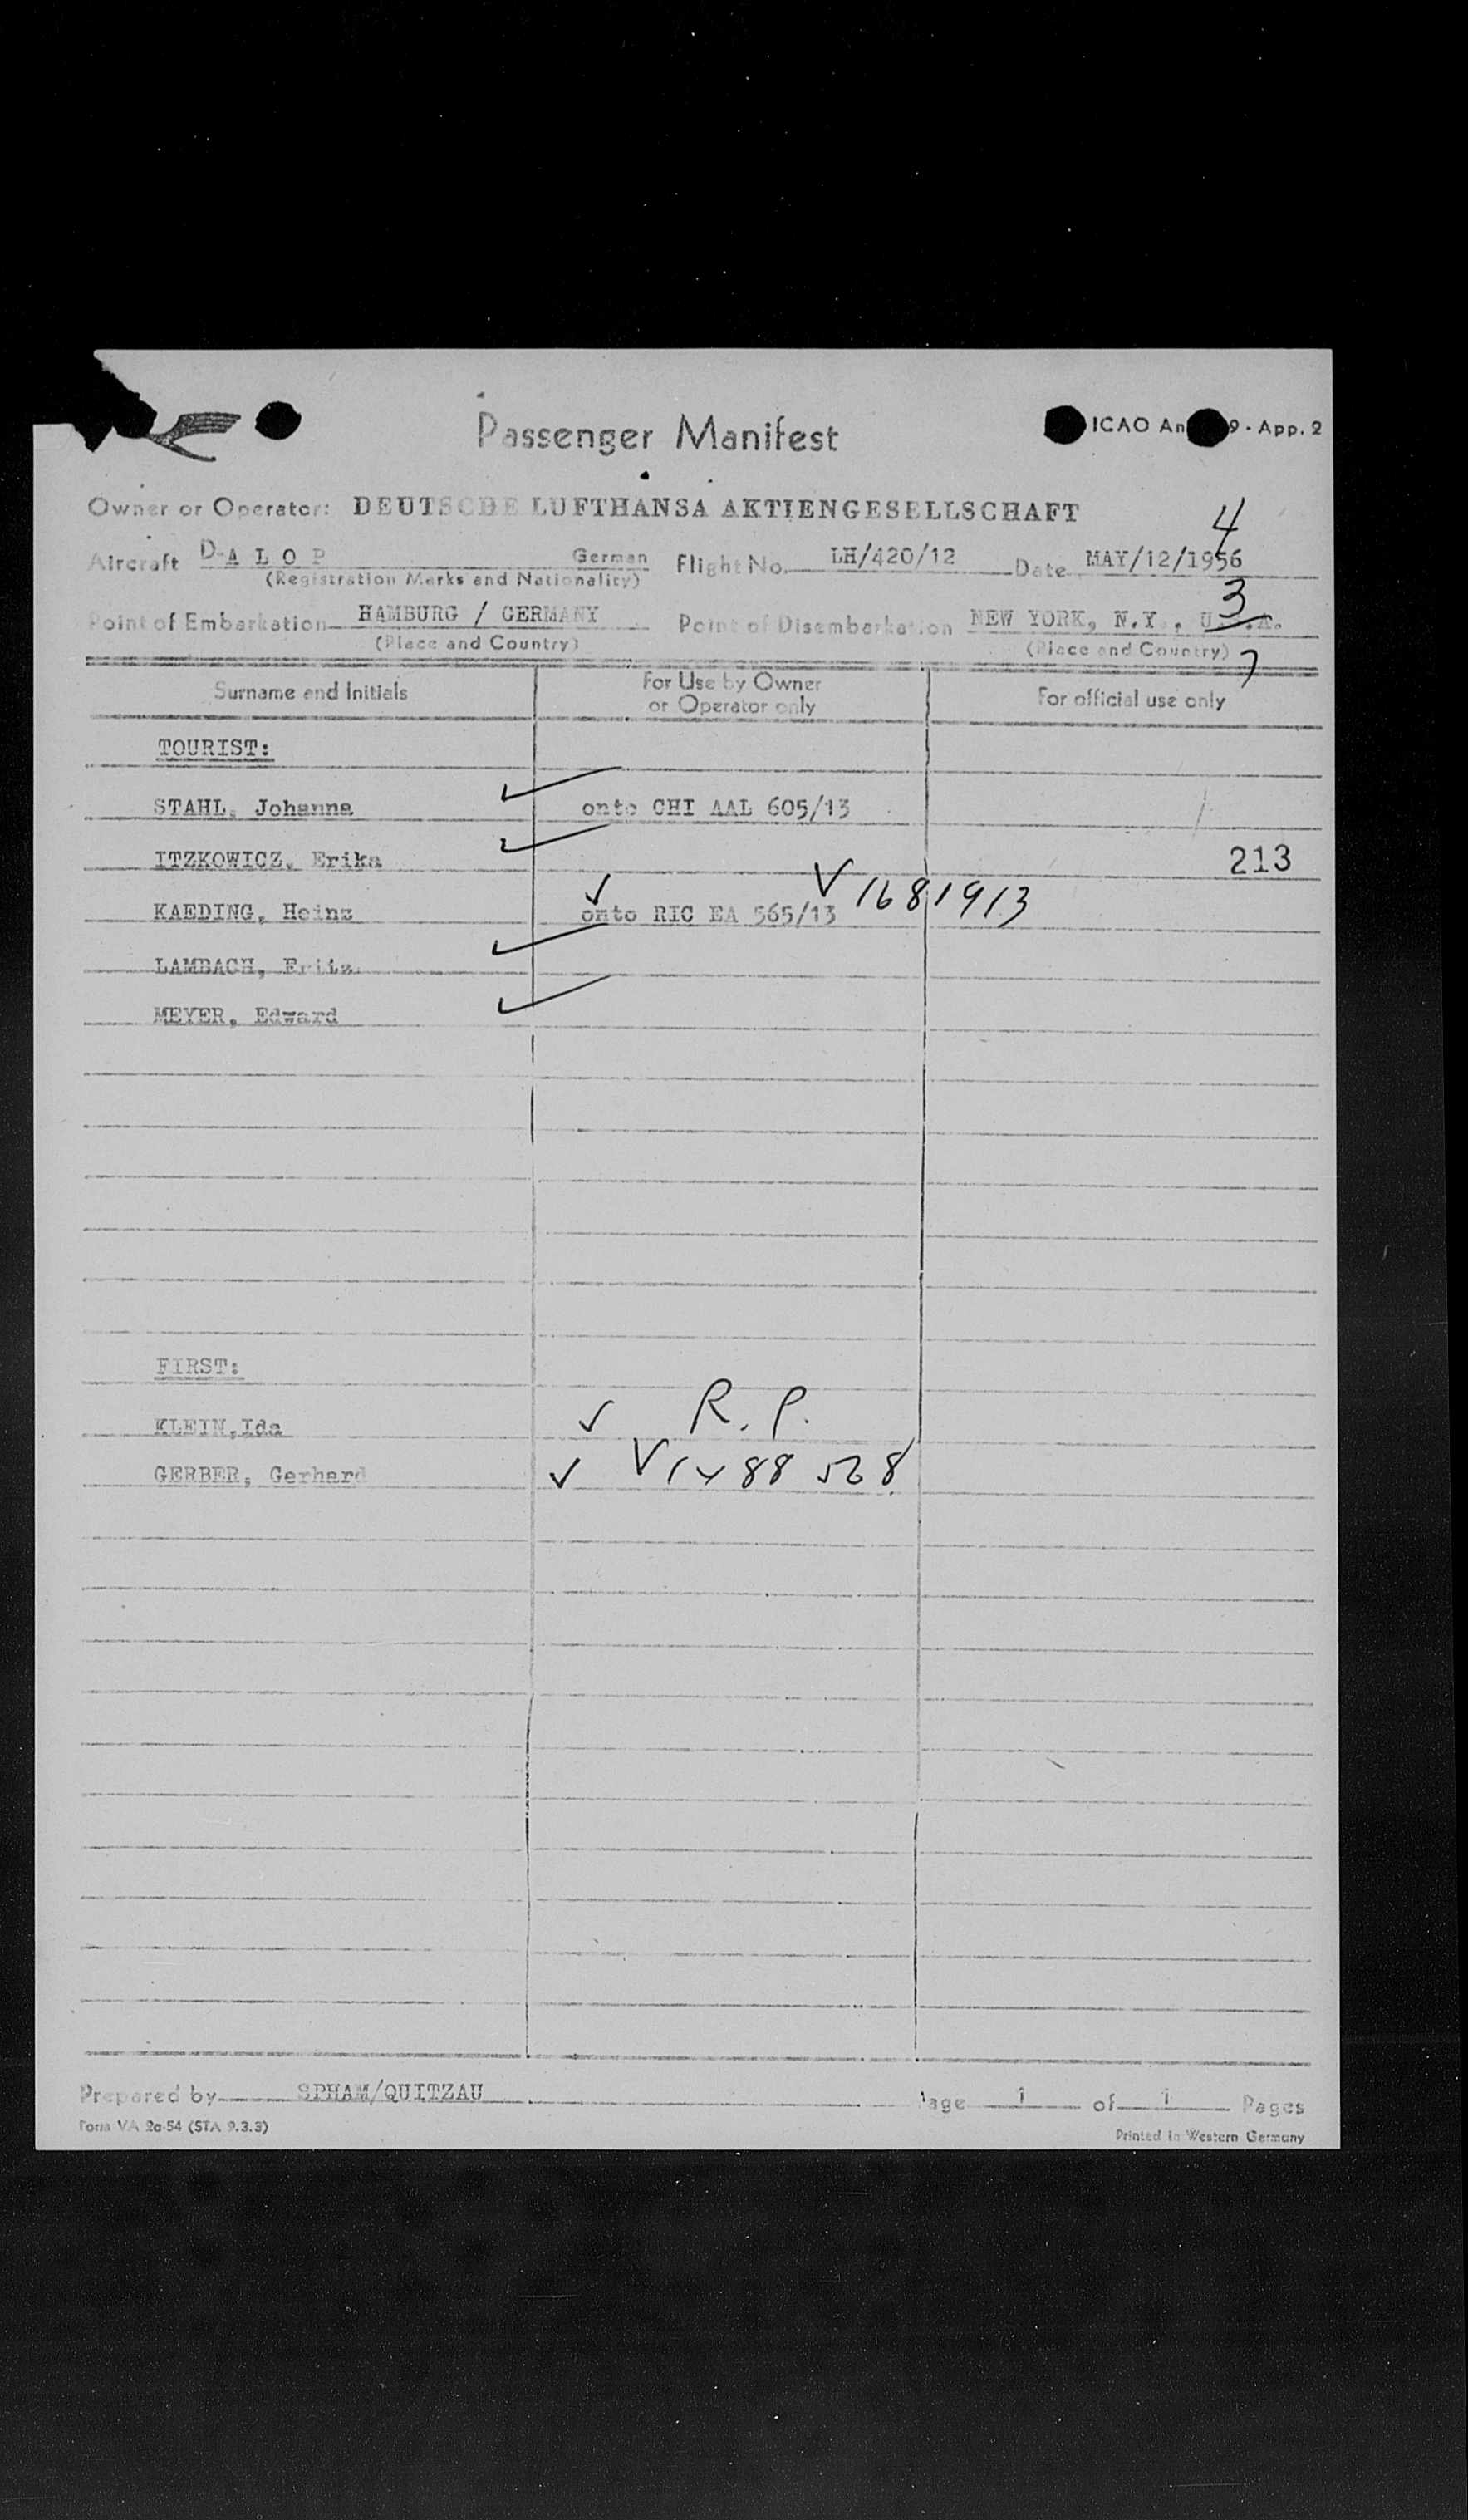 Passenger Manifest
ICAO An 9 - App. 2
Owner or Operator: DEUTSCHE LUFTHANSA AKTIENGESELLSCHAFT
4
Aircraft D-A L O P German Flight No. LH/420/12 Date MAY/12/1956
(Registration Marks and Nationality)
3
Point of Embarkation HAMBURG / GERMANY Point of Disembarkation NEW YORK, N.Y., U. .A.
(Place and Country) (Place and Country)
7
Surname and Initials For Use by Owner or Operator only For official use only
TOURIST:
STAHL, Johanna onto CHI AAL 605/13
ITZKOWICZ, Erika 213
KAEDING, Heinz onto RIC EA 565/13 V 1681913
LAMBACH, Fritz
MEYER, Edward
FIRST:
KLEIN,Ida R.P.
GERBER, Gerhard
Prepared by SPHAM/QUITZAU Page 1 of 1 Pages
Form VA 2a-54 (STA 9.3.3)
Printed in Western Germany